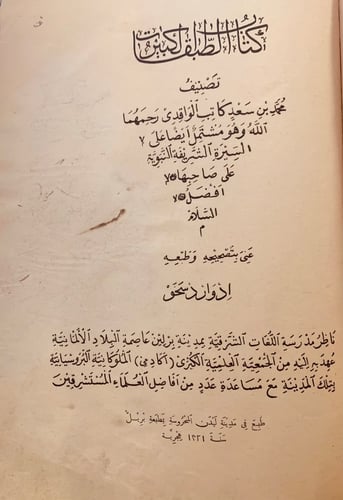 كتاب الطبقات الكبير
تصنيف
محمد بن سعد كاتب الواقدي رحمهما
الله وهو مشتمل ايضا على
السيرة الشريفة النبوية
على صاحبها
افضل
السلام
م
عنى بتصحيحه وطبعه
ادوارد سخو
ناظر مدرسة اللغات الشرقية بمدينة برلين عاصمة البلاد الألمانية
عهد بر اليه من الجمعية العلمية الكبرى (اكادمي) الملوكانية البروسيانية
بتلك المدينة مع مساعدة عدد من افاضل العلماء المستشرقين
طبع في مدينة ليدن المحروسة بمطبعة بريل
سنة ١٣٢١ هجرية